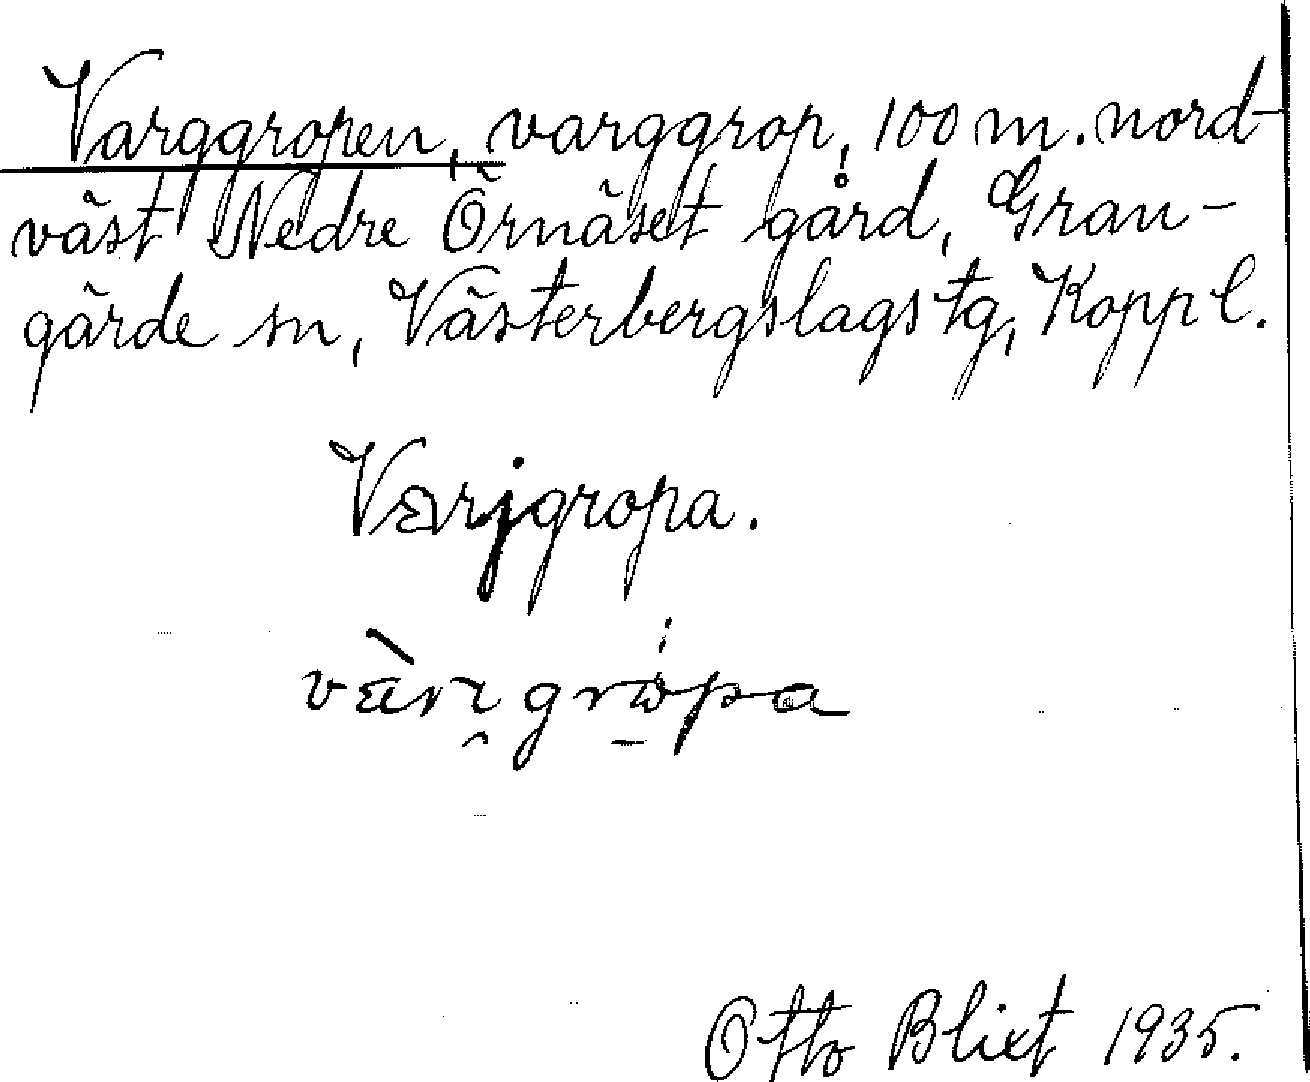 Varggropen, varggrop, 100 m. nord-
väst Nedre Örnäset gård, Gran-
gärde sn, Västerbergslags tg, Kopp l.
Varjgropa.
Otto Blixt 1935.